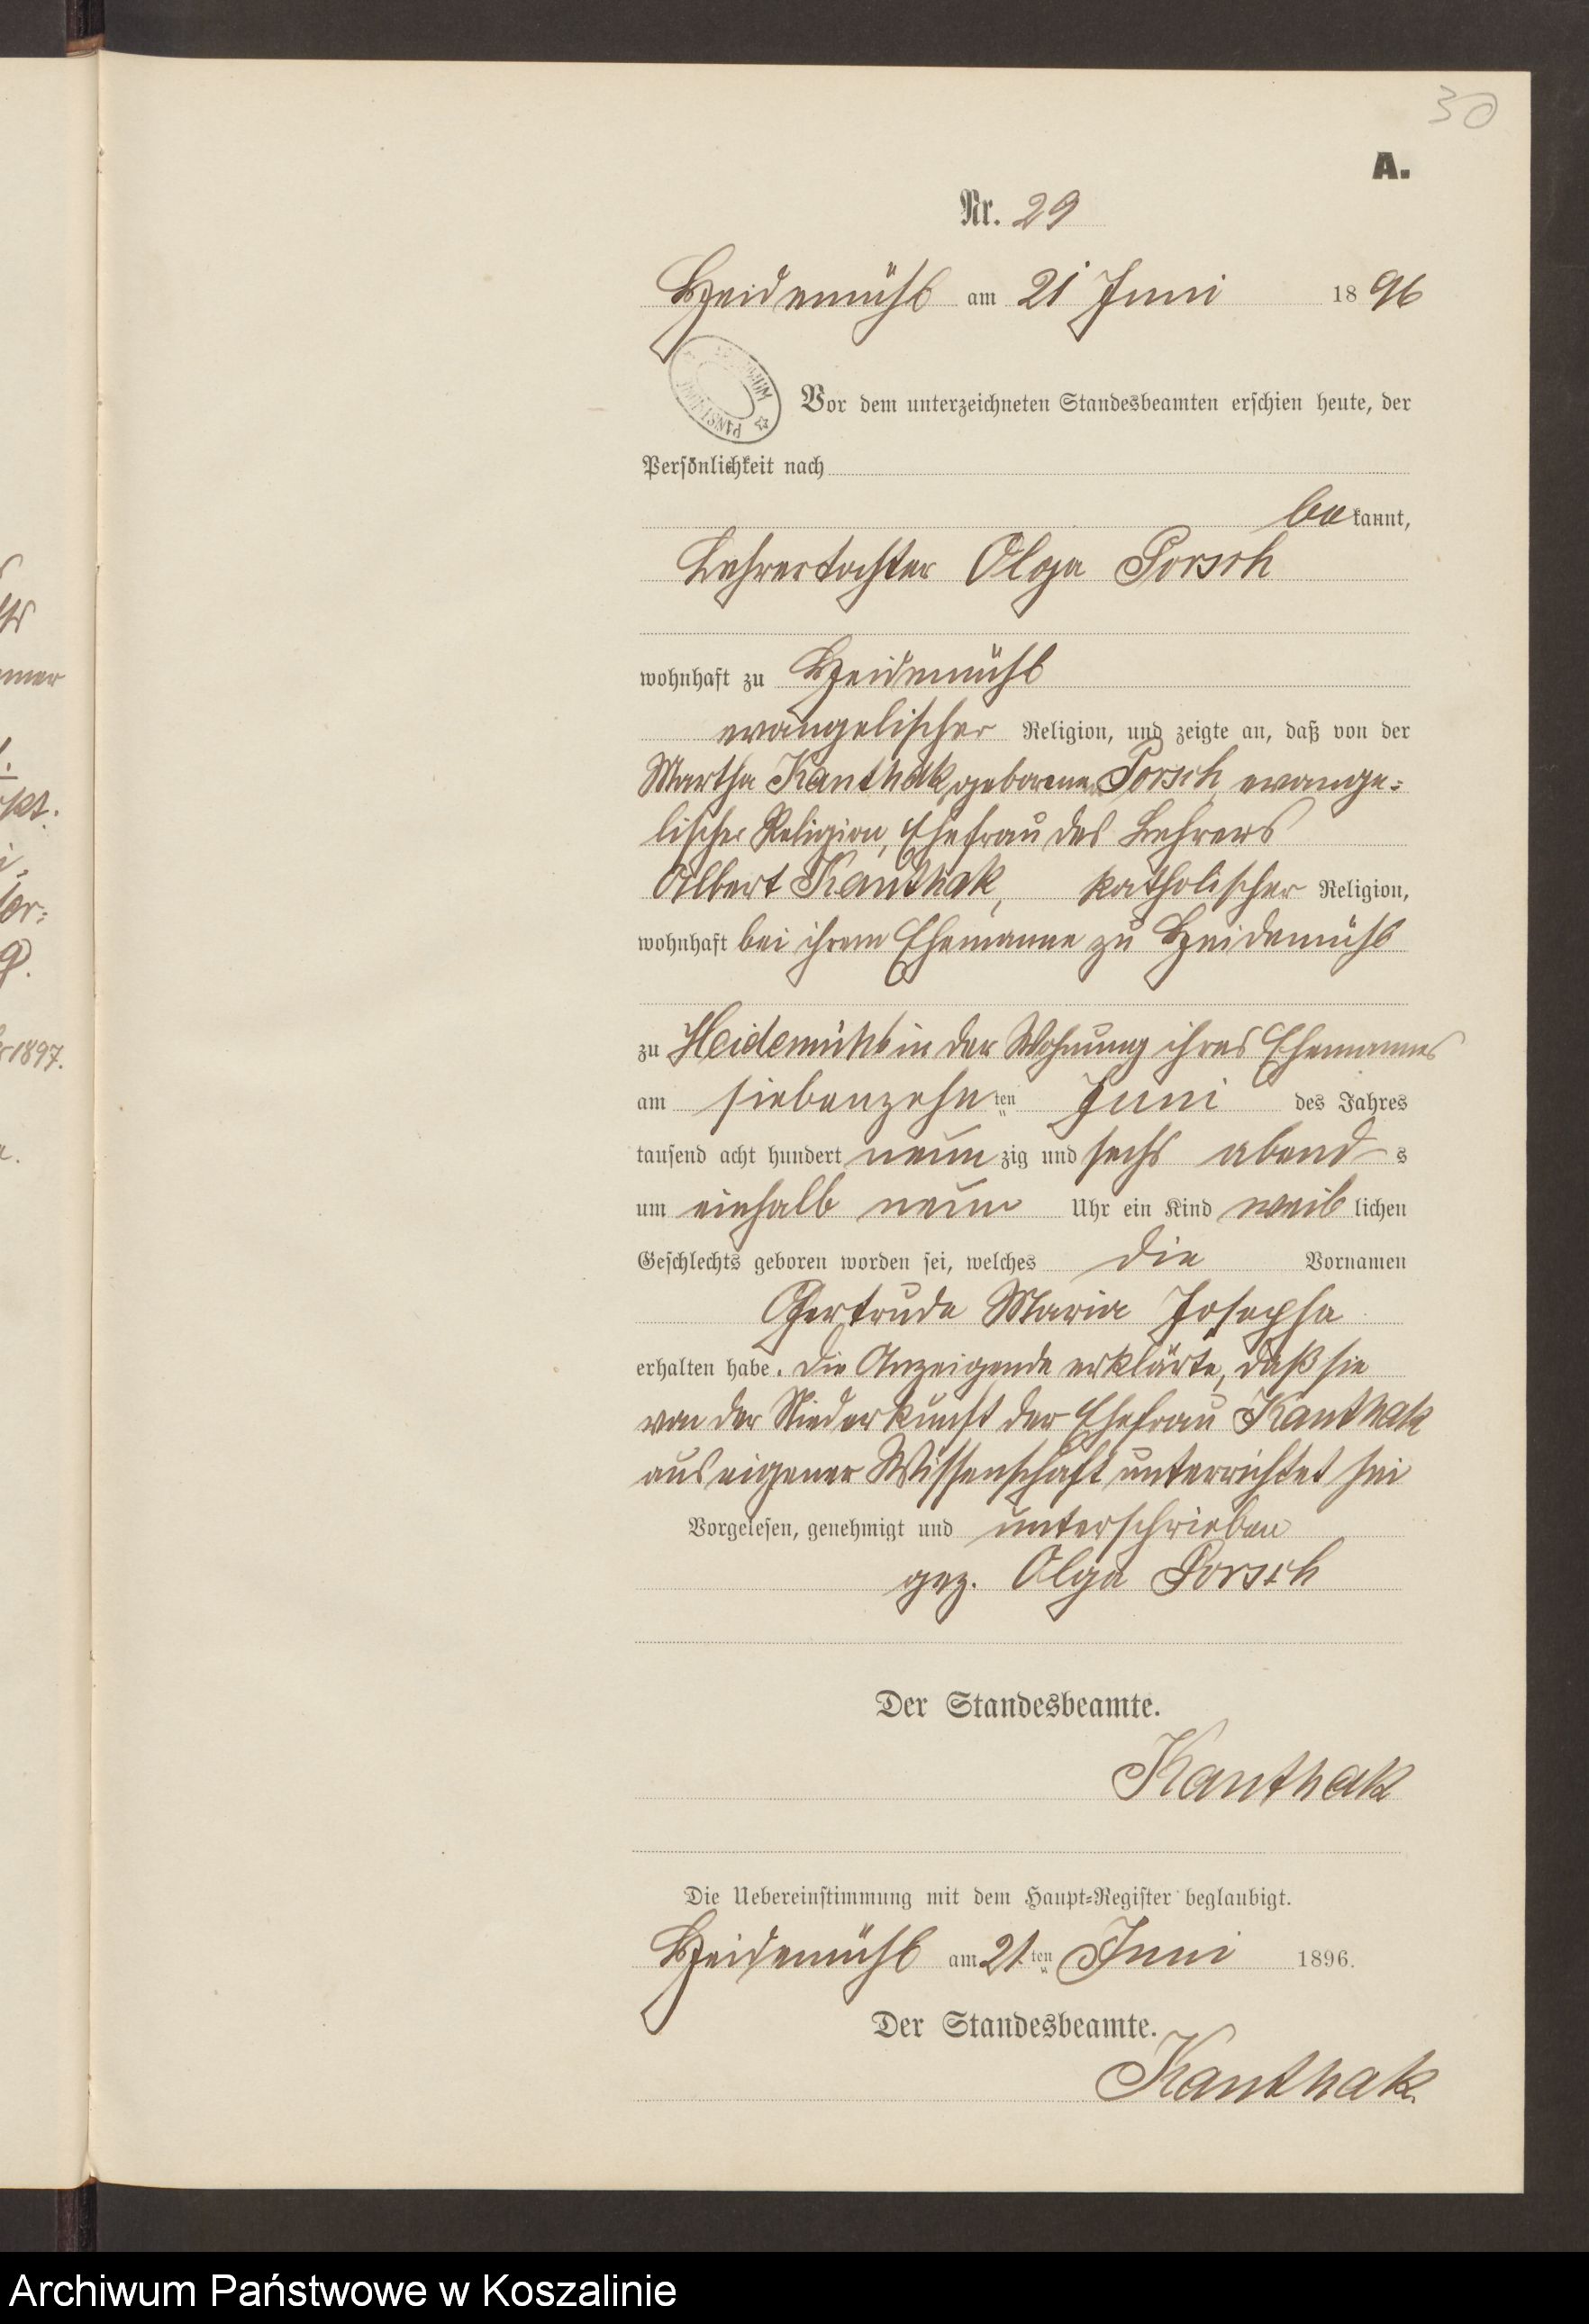 30
A.
Nr. 29
Heidemühl am 21 Juni 1896
Vor dem unterzeichneten Standesbeamten erschien heute, der
Persönlichkeit nach
bekannt,
Lehrertochter Olga Porsch
wohnhaft zu Heidemühl
evangelischer Religion, und zeigte an, daß von der
Martha Kanthak, geborene Porsch, evange-
lischer Religion, Ehefrau des Lehrers
Albert Kanthak, katholischer Religion,
wohnhaft bei ihrem Ehemanne zu Heidemühl
zu Heidemühl in der Wohnung ihres Ehemannes
am siebenzehnten Juni des Jahres
tausend acht hundert neunzig und sechs abends
um einhalb neun Uhr ein Kind weiblichen
Geschlechts geboren worden sei, welches die Vornamen
Gertrude Maria Josepha
erhalten habe. Die Anzeigende erklärte, daß sie
von der Niederkunft der Ehefrau Kanthak
aus eigener Wissenschaft unterrichtet sei
Vorgelesen, genehmigt und unterschrieben
gez. Olga Porsch
Der Standesbeamte.
Kanthak
Die Uebereinstimmung mit dem Haupt-Register beglaubigt.
Heidemühl am 21ten Juni 1896.
Der Standesbeamte.
Kanthak
Archiwum Państwowe w Koszalinie